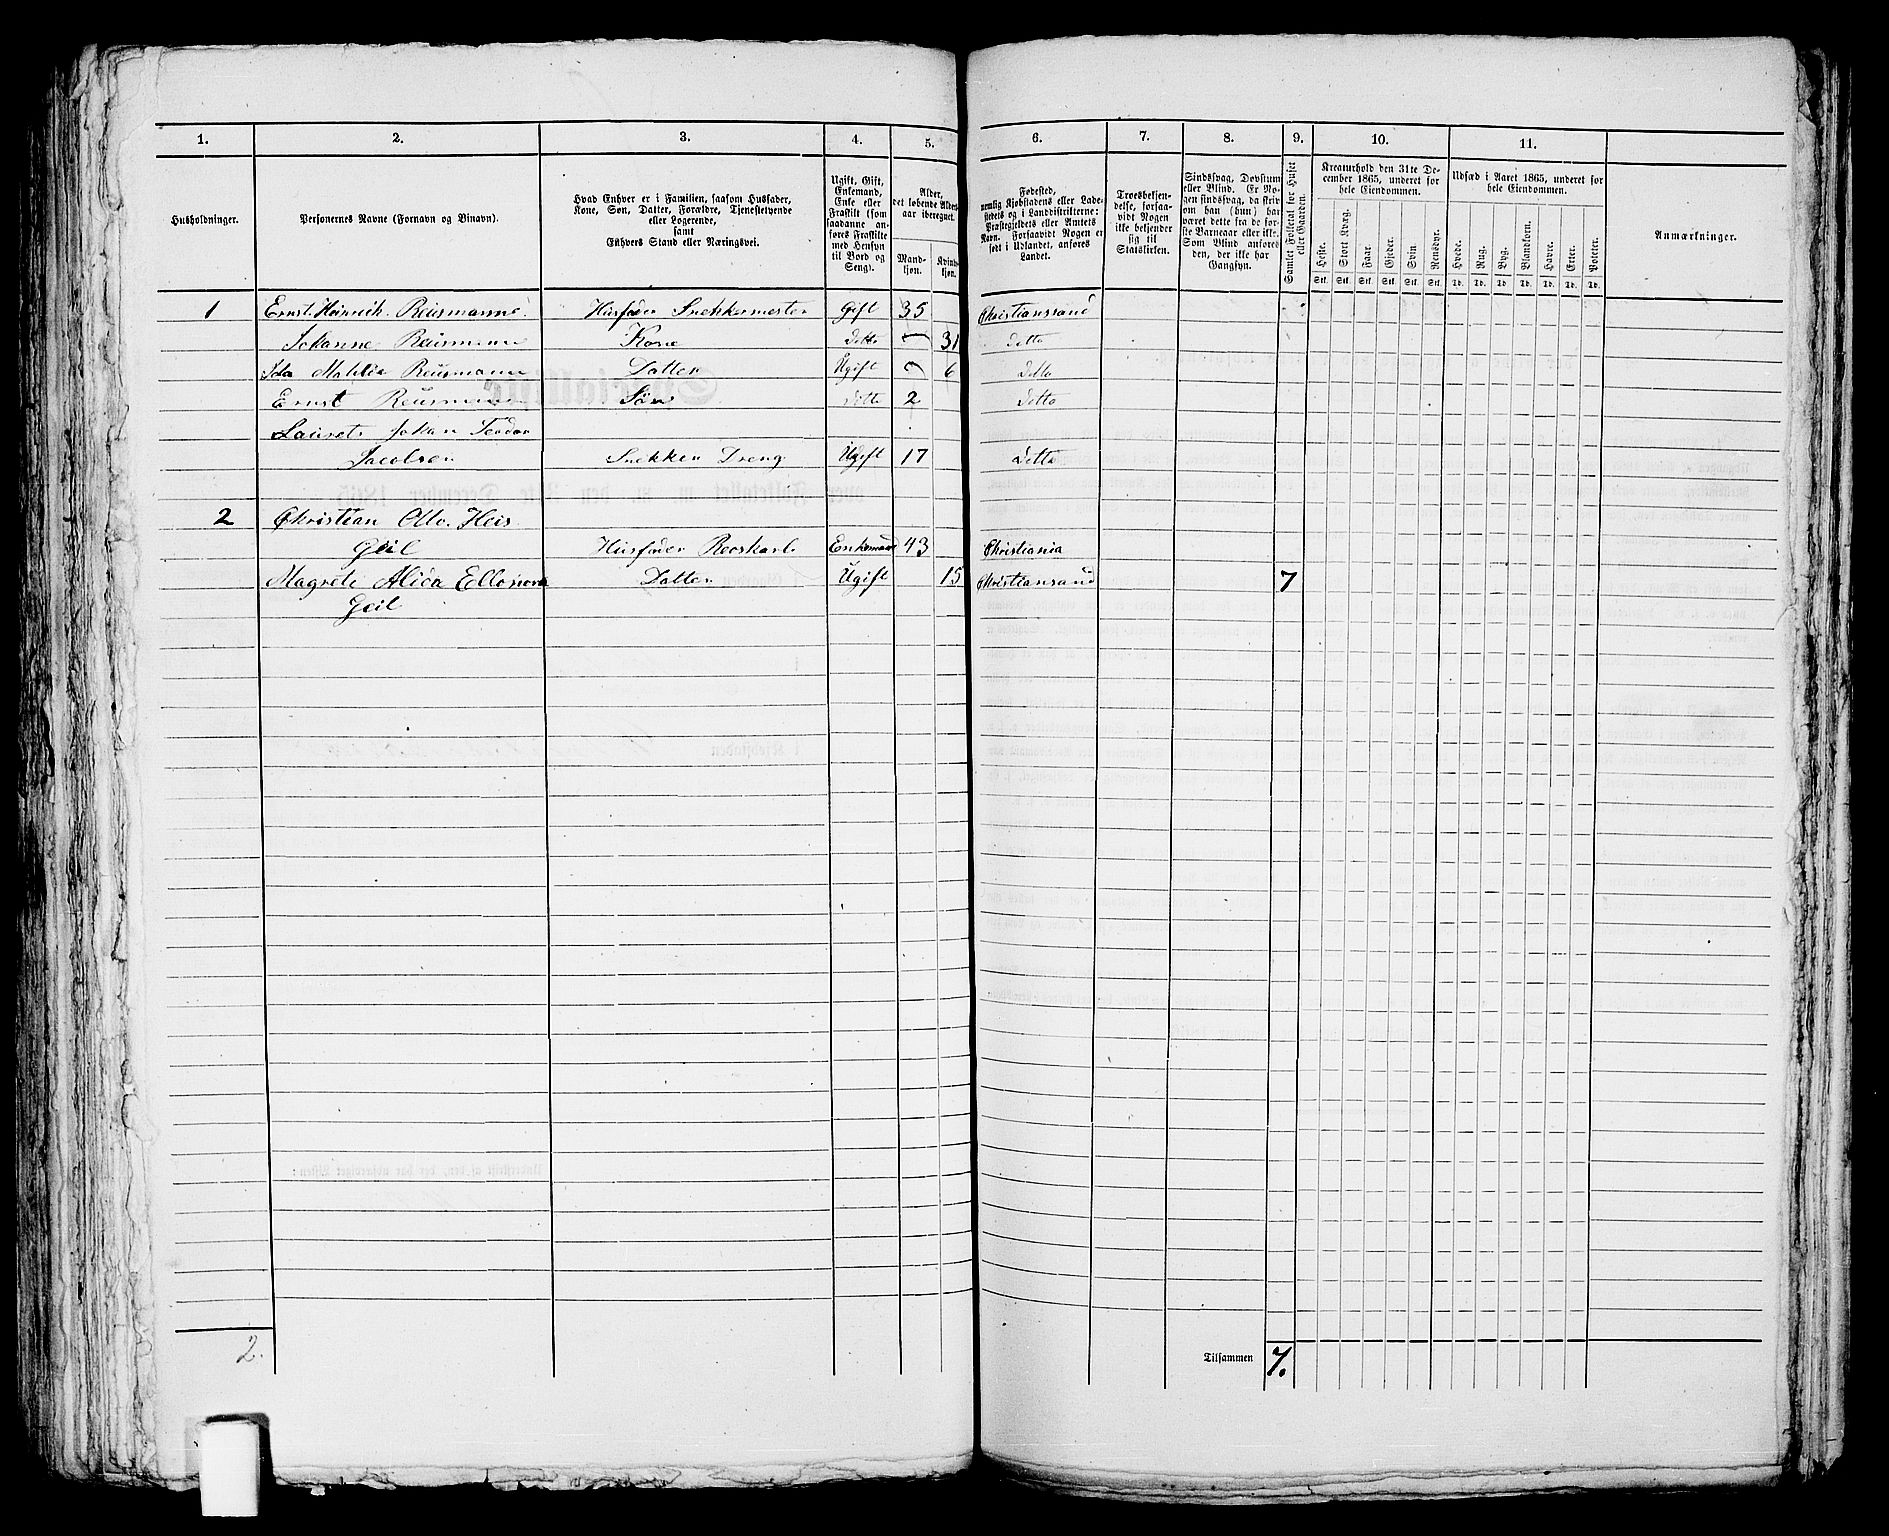 1. 2. 3. 4. 5. 6. 7. 8. 9. 10. 11.
Husholdninger.
Personernes Navne (Fornavn og Binavn).
Hvad Enhver er i Familien, saasom Husfader,
Kone, Søn, Datter, Forældre, Tjenestetyende
eller Logerende,
samt
Enhvers Stand eller Næringsvei.
Ugift, Gift,
Enkemand,
Enke eller
Fraskilt (som
saadanne an-
føres Fraskilte
med Hensyn
til Bord og
Seng).
Alder,
det løbende Alders-
aar iberegnet.
Mand-
kjøn.
Kvind-
kjøn.
Fødested,
nemlig Kjøbstadens eller Lade-
stedets og i Landdistrikterne:
Præstegjeldets eller Amtets
Navn. Forsaavidt Nogen er
født i Udlandet, anføres
Landet.
Troesbekjen-
delse, forsaa-
vidt Nogen
ikke bekjender
sig til
Statskirken.
Sindssvag, Døvstum
eller Blind. Er No-
gen sindssvag, da skriv
om han (hun) har
været dette fra de før-
ste Barneaar eller ikke.
Som Blind anføres
den, der ikke har
Gangsyn.
Samlet Folketal for Huset
eller Gaarden.
Kreaturhold den 31te De-
cember 1865, underet for
hele Eiendommen.
Heste. Stort Kvæg. Faar. Gjeder. Svin Rensdyr.
Stk. Stk. Stk. Stk. Stk. Stk.
Udsæd i Aaret 1865, underet for
hele Eiendommen.
Hvede. Rug. Byg. Blandkorn. Havre. Erter. Poteter.
Td. Td. Td. Td. Td. Td. Td.
Anmærkninger.
1 Ernst Heinrich Reusmanne Husfader Snekkermester Gift 35 Christianssand
Johanne Reusmann Kone Ditto 31 Ditto
Ida Matilda Reusmann Datter Ugift 6 Ditto
Ernst Reusmann Søn Ditto 2 Ditto
Laurets Johan Teodor
Jacobsen Snekker Dreng Ugift 17 Ditto
2 Christian Otto Heis
Geil Husfader Enkemand 43 Christiania
Magrete Alida Geil Datter Ugift 15 Christiansand 7
Geil
2.
Tilsammen 7.